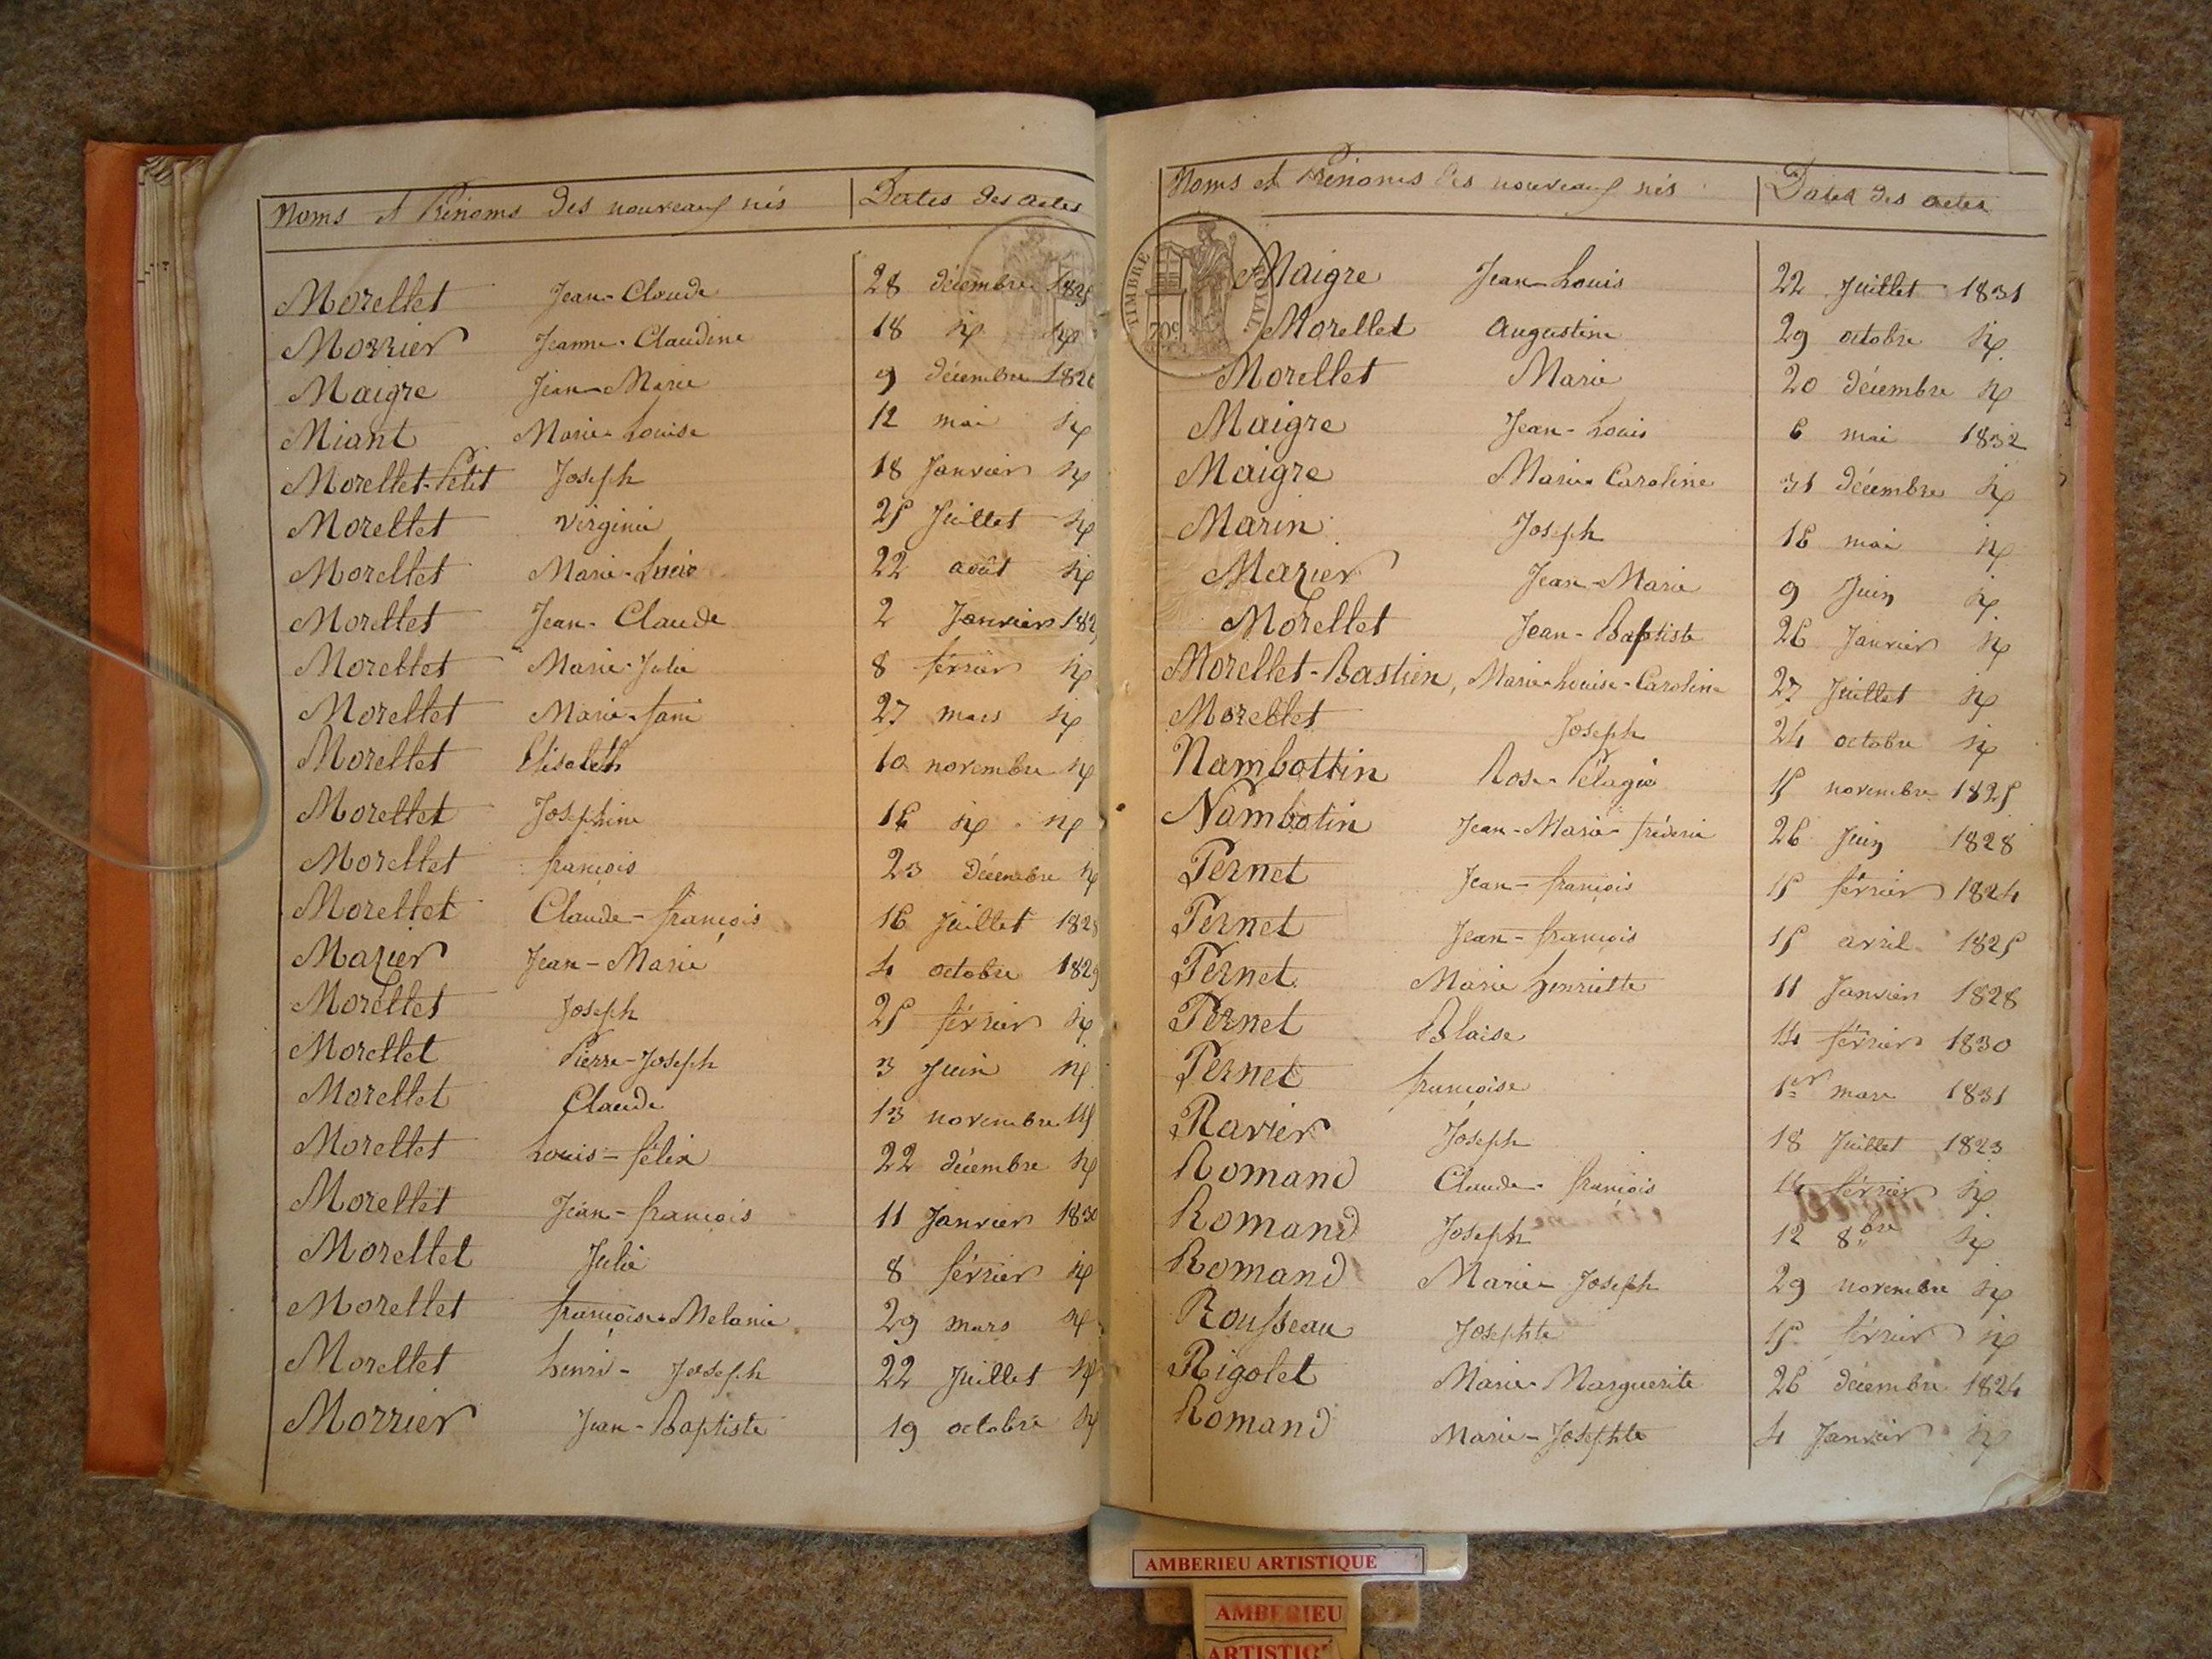 Noms et Prénoms des nouveaux nés Dates des actes
Morellet Jean-Claude 28 décembre
Morrier Jeanne-Claudine 18 id id
Maigre Jean-Marie 9 décembre 1826
Miant Marie-Louise 12 mai id
Morellet-Petit Joseph 18 Janvier id
Morellet Virginie 25 Juillet id
Morellet Marie-Lucie 22 août id
Morellet Jean-Claude 2 Janvier
Morellet Marie-Julie 8 février id
Morellet Marie-fani 27 mars id
Morellet Elisabeth 10 novembre id
Morellet Josephine 16 id id
Morellet françois 23 Décembre id
Morellet Claude-françois 16 Juillet 1828
Mazier Jean-Marie 4 octobre 1829
Morellet Joseph 25 février id
Morellet Pierre-Joseph 3 Juin id
Morellet Claude 13 novembre id
Morellet Louis-félix 22 décembre id
Morellet Jean-françois 11 Janvier 1830
Morellet Julie 8 février id
Morellet françoise-Melanie 29 mars id
Morellet henri-Joseph 22 Juillet id
Morrier Jean-Baptiste 19 octobre id
Noms et Prénoms des nouveaux nés Dates des actes
TIMBRE ROYAL
70c
Maigre Jean-Louis 22 Juillet 1831
Morellet Augustine 29 octobre id
Morellet Marie 20 décembre id
Maigre Jean-Louis 6 mai 1832
Maigre Marie Caroline 31 décembre id
Marin Joseph 16 mai id
Mazier Jean-Marie 9 Juin id
Morellet Jean-Baptiste 26 Janvier id
Morellet-Bastien, Marie-Louise-Caroline 27 Juillet id
Morellet Joseph 24 octobre id
Nambottin Rose-Pélagie 15 novembre 1825
Nambotin Jean-Marie-fréderic 26 Juin 1828
Pernet Jean-françois 15 février 1824
Pernet Jean-françois 15 avril 1825
Pernet Marie henriette 11 Janvier 1828
Pernet Blaise 14 février 1830
Pernet françoise 1er mars 1831
Ravier Joseph 18 Juillet 1823
Romand Claude-françois 14 février id
Romand Joseph 12 8bre id
Romand Marie-Joseph 29 novembre id
Rousseau Josephte 15 février id
Rigolet Marie-Marguerite 26 décembre 1824
Romand Marie-Josephte 4 Janvier id
AMBERIEU ARTISTIQUE
AMBERIEU